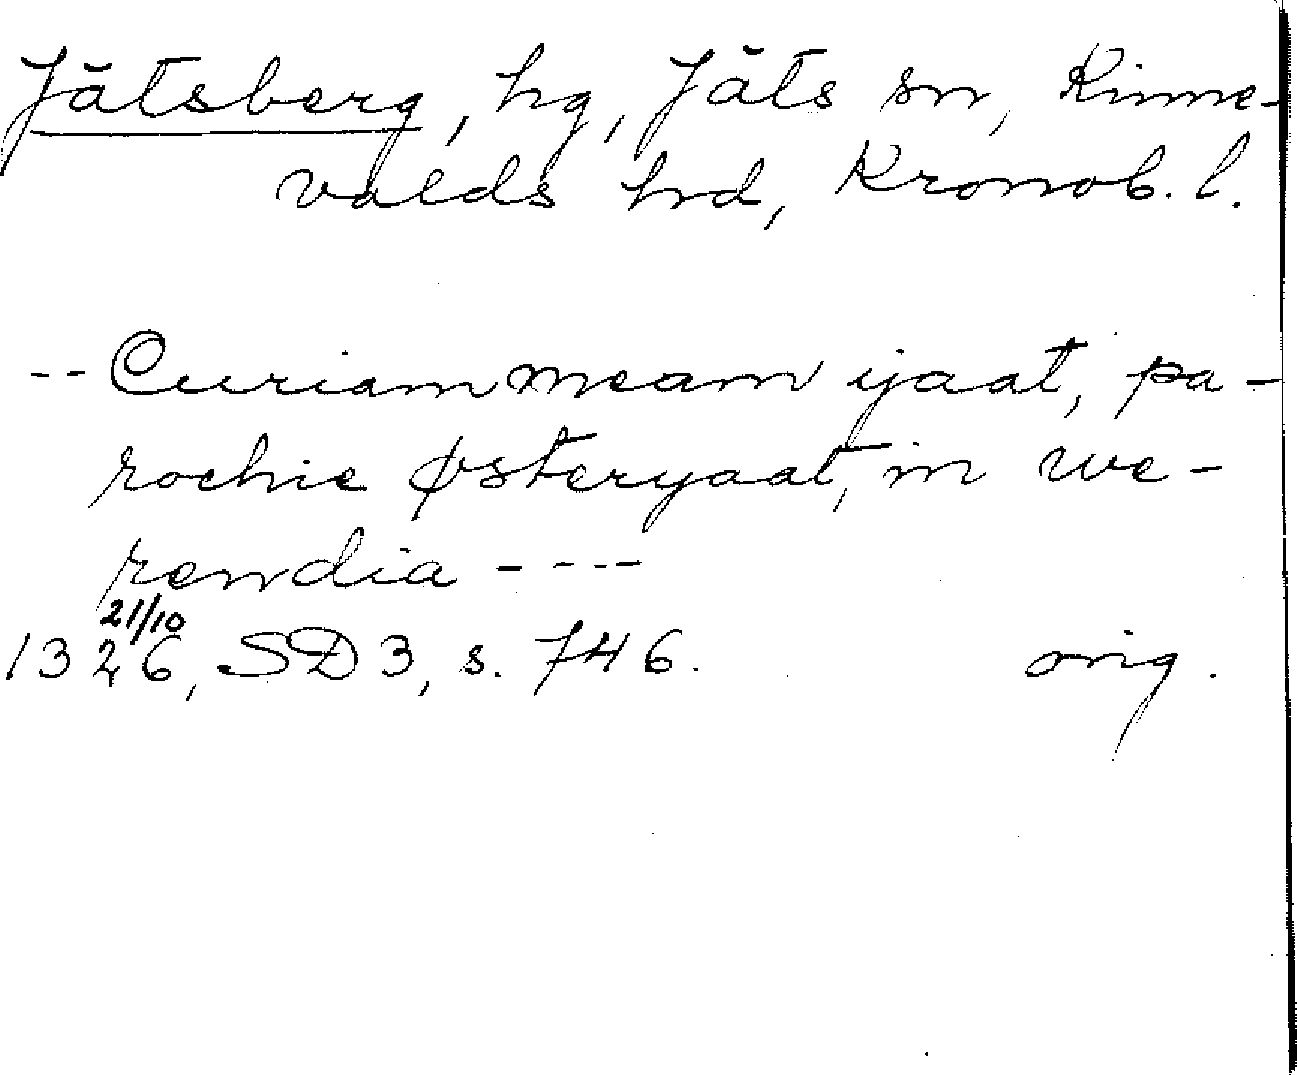 Jätsberg, hg, Jäts sn, Kinne-
valds hrd, Kronob. l.
-- Curiam meam ijaat, pa-
rochie Østeryaat, in we-
rendia ----
21/10
1326, SD 3, s. 746. orig.